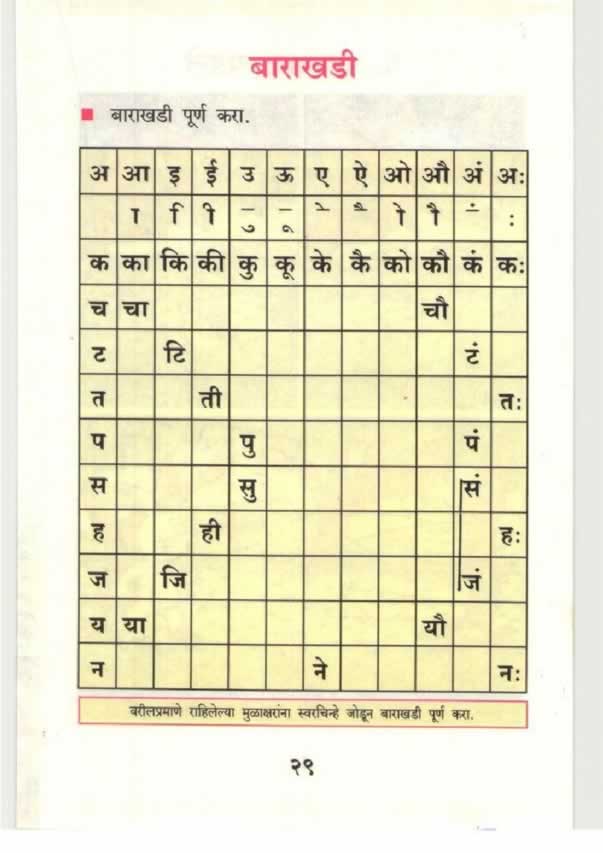 बाराखडी
बाराखडी पूर्ण करा.
अ आ इ ई उ ऊ ए ऐ ओ औ अं अः
ा ि ी ु ू े ै ो ौ ं ः
क का कि की कु कू के कै को कौ कं कः
च चा चौ
ट टि टं
त ती तः
प पु पं
स सु सं
ह ही हः
ज जि जं
य या यौ
न ने नः
वरीलप्रमाणे राहिलेल्या मुळाक्षरांना स्वरचिन्हे जोडून बाराखडी पूर्ण करा.
२९